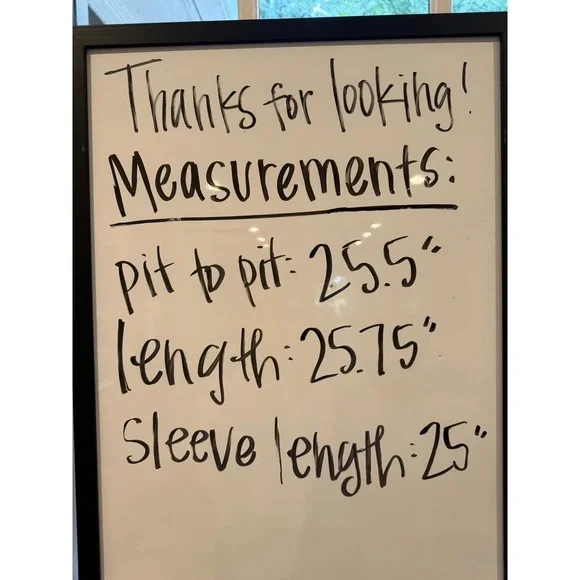 Thanks for looking!
Measurements:
pit to pit: 25.5"
length: 25.75"
sleeve length: 25"